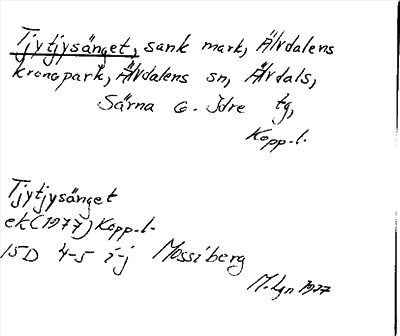 Tjytjysänget, sank mark, Älvdalens
kronopark, Älvdalens sn, Älvdals,
Särna o. Idre tg,
Kopp.l.
Tjytjysänget
ek(1977) Kopp.l.
15D 4-5 i-j Mossiberg
M.Lgn 1977